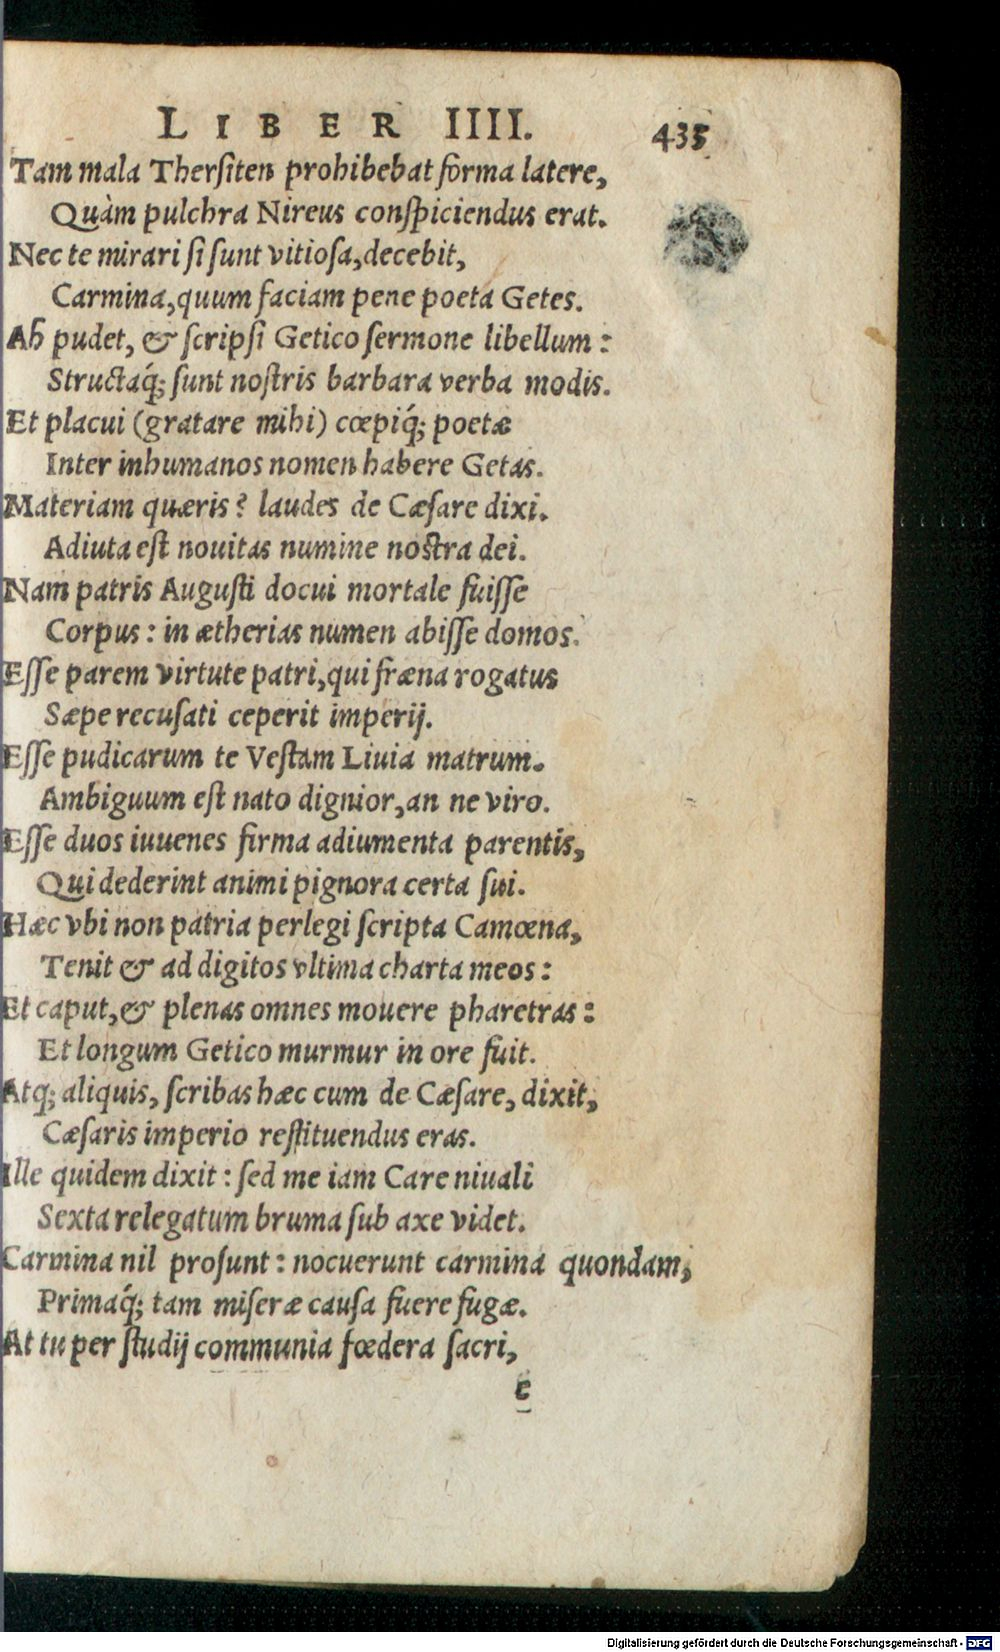 LIBER IIII. 435
Tam mala Thersiten prohibebat forma latere,
Quàm pulchra Nireus conspiciendus erat.
Nec te mirari si sunt vitiosa, decebit,
Carmina, quum faciam pene poeta Getes.
Ah pudet, & scripsi Getico sermone libellum:
Structaq́; sunt nostris barbara verba modis.
Et placui (gratare mihi) cœpiq́; poetæ
Inter inhumanos nomen habere Getas.
Materiam quæris? laudes de Cæsare dixi.
Adiuta est nouitas numine nostra dei.
Nam patris Augusti docui mortale fuisse
Corpus: in ætherias numen abisse domos.
Esse parem virtute patri, qui fræna rogatus
Sæpe recusati ceperit imperij.
Esse pudicarum te Vestam Liuia matrum.
Ambiguum est nato dignior, an ne viro.
Esse duos iuuenes firma adiumenta parentis,
Qui dederint animi pignora certa sui.
Hæc vbi non patria perlegi scripta Camœna,
Tenit & ad digitos vltima charta meos:
Et caput, & plenas omnes mouere pharetras:
Et longum Getico murmur in ore fuit.
Atq; aliquis, scribas hæc cum de Cæsare, dixit,
Cæsaris imperio restituendus eras.
Ille quidem dixit: sed me iam Care niuali
Sexta relegatum bruma sub axe videt.
Carmina nil prosunt: nocuerunt carmina quondam,
Primaq́; tam miseræ causa fuere fugæ.
At tu per studij communia fœdera sacri,
c
Digitalisierung gefördert durch die Deutsche Forschungsgemeinschaft - DFG